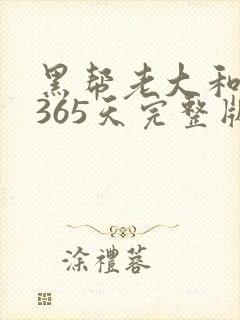 黑帮老大和
365天完整版
涂禮蓉